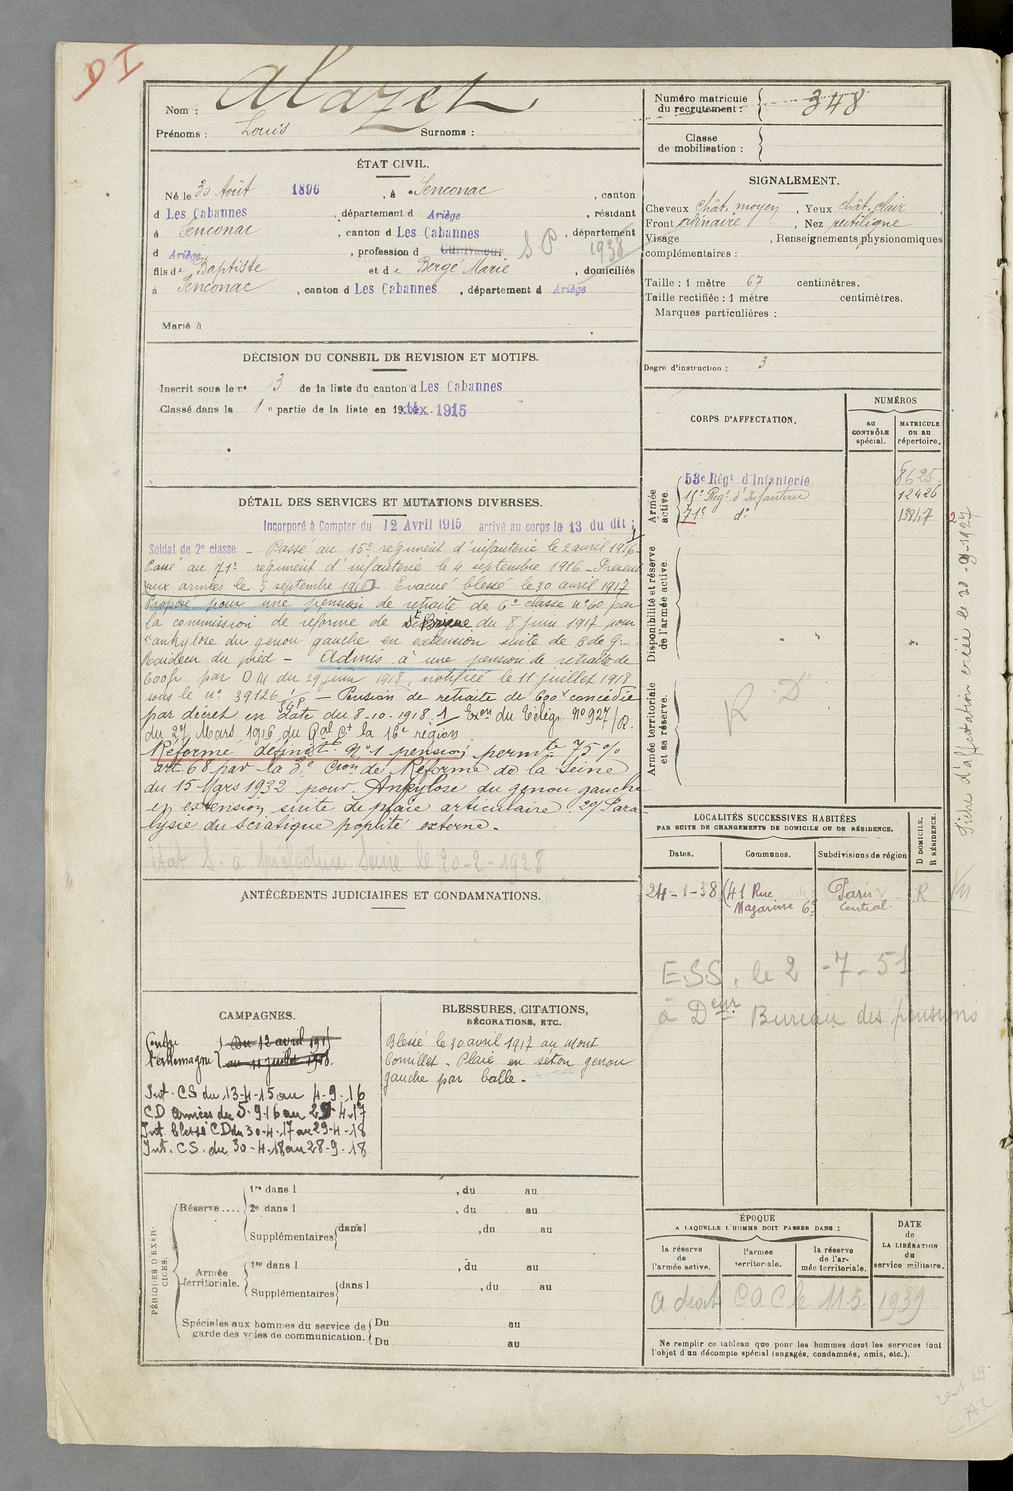 Nom : Alazet
Prénoms : Louis Surnoms :
Numéro matricule du recrutement : 348
Classe de mobilisation :
ÉTAT CIVIL.
Né le 30 Août 1896, à Senconac, canton
d Les Cabannes, département d Ariège, résidant
à Senconac, canton d Les Cabannes, département
d Ariège, profession d Cultivateur S P 1938
fils de Baptiste et de Bergé Marie, domiciliés
à Senconac, canton d Les Cabannes, département d Ariège
Marié à
SIGNALEMENT.
Cheveux chât. moyen, Yeux chât. clair
Front ordinaire, Nez rectiligne
Visage , Renseignements physionomiques
complémentaires :
Taille : 1 mètre 67 centimètres.
Taille rectifiée : 1 mètre centimètres.
Marques particulières :
Degré d'instruction : 3
DÉCISION DU CONSEIL DE REVISION ET MOTIFS.
Inscrit sous le n° 3 de la liste du canton d Les Cabannes
Classé dans la 1e partie de la liste en 19 1915
DÉTAIL DES SERVICES ET MUTATIONS DIVERSES.
Incorporé à Compter du 12 Avril 1915 arrivé au corps le 13 du dit ;
Soldat de 2e classe - Passé au 15e régiment d'infanterie le 2 avril 1916
Passé au 71e régiment d'infanterie le 4 septembre 1916 - Présent
aux armées le 5 septembre 1916. Evacué blessé le 30 avril 1917
Proposé pour une pension de retraite de 6e classe n° 60 par
la commission de réforme de St Brieuc du 8 juin 1917 pour
ankylose du genou gauche en extension suite de B de G -
Raideur du pied - Admis à une pension de retraite de
600f par D M du 29 juin 1918, notifiée le 11 juillet 1918
sous le n° 39126 - Pension de retraite de 600f concédée
par décret en date du 8-10-1918. SGP
Exon du Télég. N° 927/R.
du 27 Mars 1916 du Gal Ct la 16e région
Réformé définitt N° 1 pension permte 75 %
art. 68 par la 3e Cion de Réforme de la Seine
du 15 Mars 1932 pour : Ankylose du genou gauche
en extension suite de plaie articulaire 2°/ Para
lysie du sciatique poplité externe.
Préfecture Seine le 20-2-1928
ANTÉCÉDENTS JUDICIAIRES ET CONDAMNATIONS.
CORPS D'AFFECTATION.
NUMÉROS
au CONTRÔLE spécial.
MATRICULE ou au répertoire.
Armée active.
53e Régt d'Infanterie 8625
15e Régt d'Infanterie 12426
71e d° 13847
Disponibilité et réserve de l'armée active.
Armée territoriale et sa réserve.
R D
Fiche d'affectation créée le
LOCALITÉS SUCCESSIVES HABITÉES
PAR SUITE DE CHANGEMENTS DE DOMICILE OU DE RÉSIDENCE.
Dates. Communes. Subdivisions de région D DOMICILE. R RÉSIDENCE.
24-1-38 41 Rue Mazarine 6e Paris Central. R
ESS, le 2-7-51
à Deur Bureau des pensions
CAMPAGNES.
Contre l'Allemagne
Du 12 avril 1915
au 11 juillet 1918.
Int. CS du 13-4-15 au 4-9-16
CD armées du 5-9-16 au 29-4-17
Int blessé CD du 30-4-17 au 29-4-18
Int. CS. du 30-4-18 au 28-9-18
BLESSURES, CITATIONS,
DÉCORATIONS, ETC.
Blessé le 30 avril 1917 au mont
Cornillet. Plaie en séton genou
gauche par balle.
PÉRIODES D'EXERCICES.
Réserve .... 1re dans l , du au
2e dans l , du au
Supplémentaires dans l , du au
Armée territoriale. 1re dans l , du au
Supplémentaires dans l , du au
Spéciales aux hommes du service de garde des voies de communication.
Du au
Du au
ÉPOQUE
A LAQUELLE L'HOMME DOIT PASSER DANS :
la réserve de l'armée active.
l'armée territoriale.
la réserve de l'armée territoriale.
DATE de LA LIBÉRATION du service militaire.
A droit CAC le 11-5-1939
Ne remplir ce tableau que pour les hommes dont les services font
l'objet d'un décompte spécial (engagés, condamnés, omis, etc.).
CAC